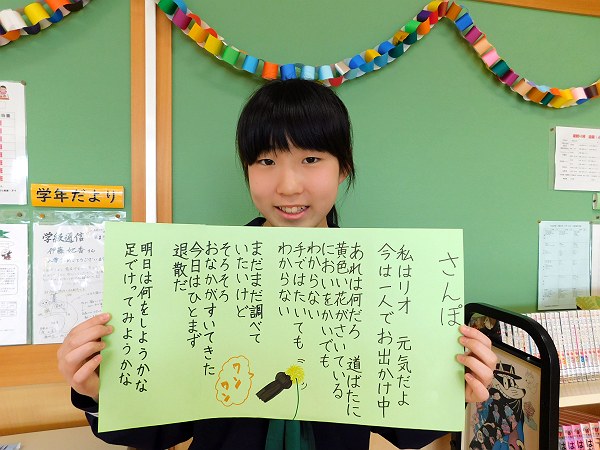 学年だより
学校通信
さんぽ
私はリオ　元気だよ
今は一人でお出かけ中
あれは何だろ　道ばたに
黄色い花がさいている
においをかいでも
わからない
手ではたいても
わからない
まだまだ調べて
いたいけど
そろそろ
おなかがすいてきた
今日はひとまず
退散だ
明日は何をしようかな
足でけってみようかな
ワンワン